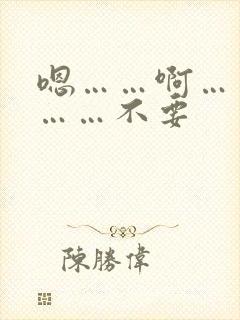 嗯……啊…
……不要
陳勝偉